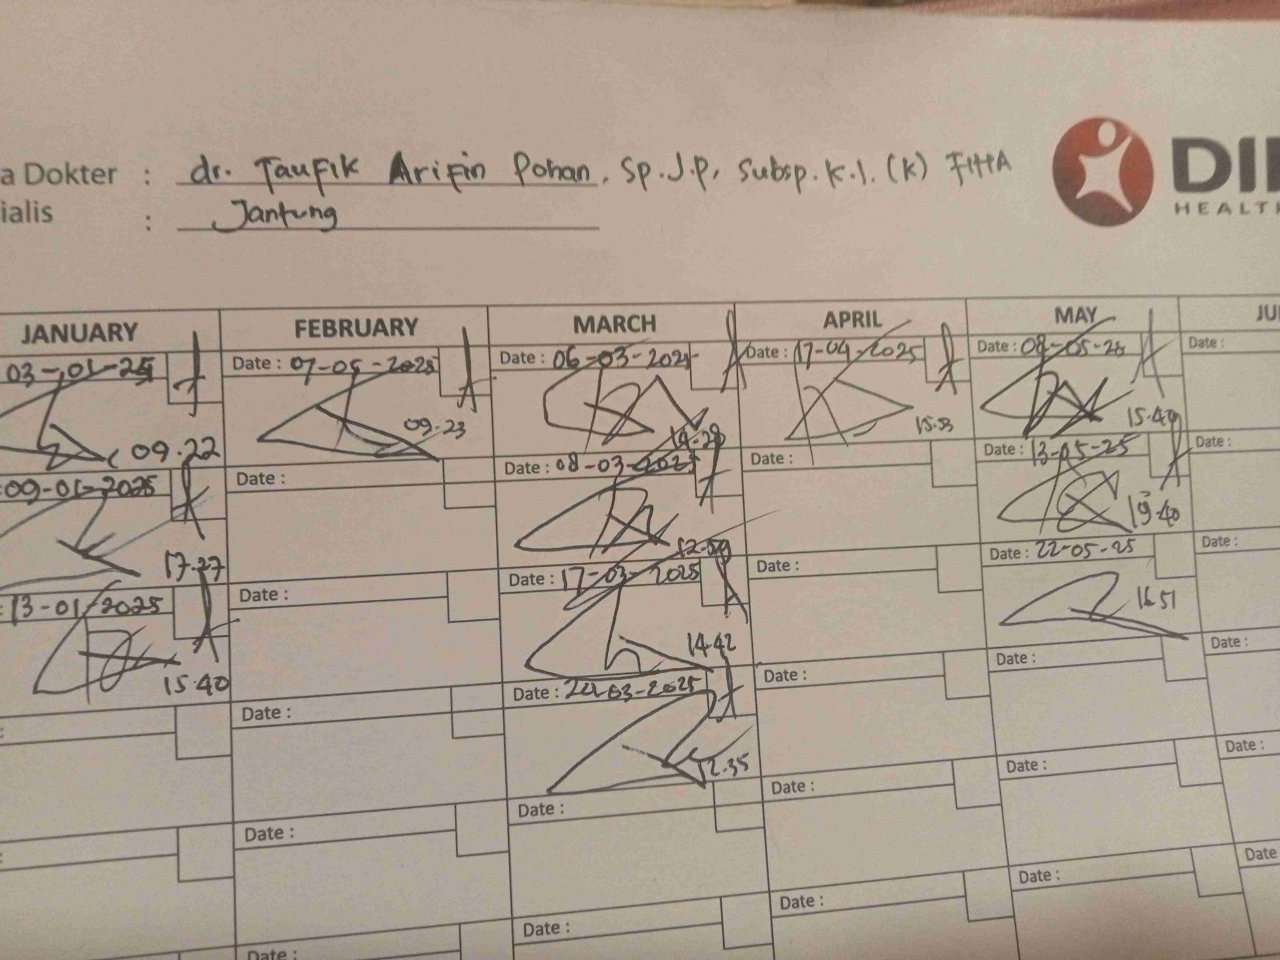 a Dokter : dr. Taufik Arifin Pohan, Sp.J.P, Subsp. K.I. (K) FIHA
ialis : Jantung
DI
HEALTH
JANUARY FEBRUARY MARCH APRIL MAY JU
03-01-25 Date : 07-05-2025 Date : 06-03-2025 Date : 17-04-2025 Date : 08-05-25 Date :
09.22 09.23 14.28 15.53 15.49
: 09-01-2025 Date : Date : 08-03-2025 Date : Date : 13-05-25 Date :
17.27 12.59 19.40
: 13-01-2025 Date : Date : 17-03-2025 Date : Date : 22-05-25 Date :
15.40 14.42 16.51
: Date : Date : 20-03-2025 Date : Date : Date :
12.35
: Date : Date : Date : Date : Date :
Date : Date : Date : Date : Date